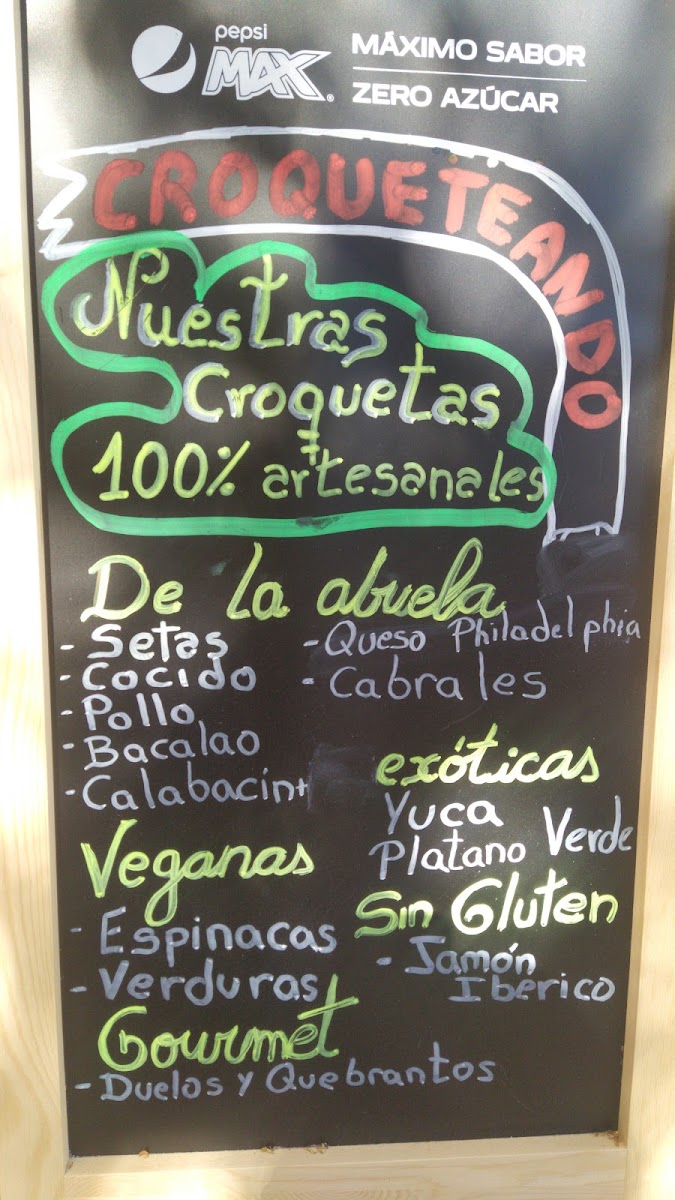 pepsi
MAX
MÁXIMO SABOR
ZERO AZÚCAR
CROQUETEANDO
Nuestras
Croquetas
100% artesanales
De la abuela
- Setas
- Cocido
- Pollo
- Bacalao
- Calabacín+
- Queso Philadelphia
- Cabrales
exóticas
Yuca
Platano Verde
Veganas
- Espinacas
- Verduras
Sin Gluten
- Jamón
Iberico
Gourmet
- Duelos y Quebrantos